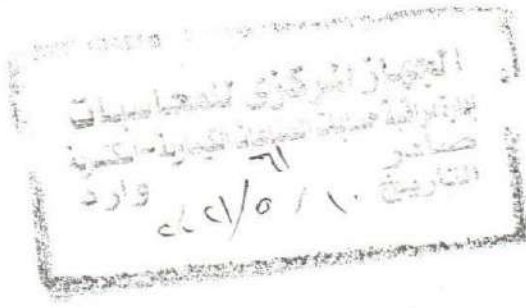 الجهاز المركزي للمحاسبات
إدارة مراقبة حسابات الصناعات الكيماوية - الاسكندرية
صادر ٦١ وارد
التاريخ ١٠ / ٥ / ٢٠٢١